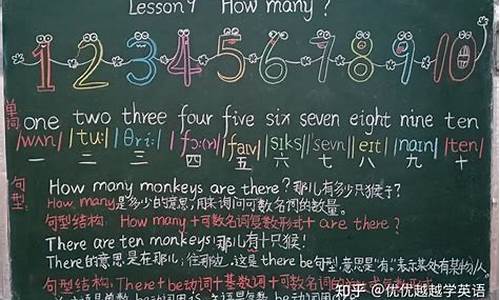 Lesson 9 How many?
1 2 3 4 5 6 7 8 9 10
单词 one two three four five six seven eight nine ten
/wʌn/ /tu:/ /θri:/ /fɔ:(r)/ /faɪv/ /sɪks/ /ˈsevn/ /eɪt/ /naɪn/ /ten/
一 二 三 四 五 六 七 八 九 十
句型: How many monkeys are there? 那儿有多少只猴子?
How many 是多少的意思,用来询问可数名词的数量。
句型结构: How many + 可数名词复数形式 + are there?
There are ten monkeys! 那儿有十只猴!
There的意思是在那儿;往那边。这是there be句型,意思是"有"表示某处有某物/人
句型结构: There + be动词 + 基数词 + 可数名词
知乎 @优优越越学英语